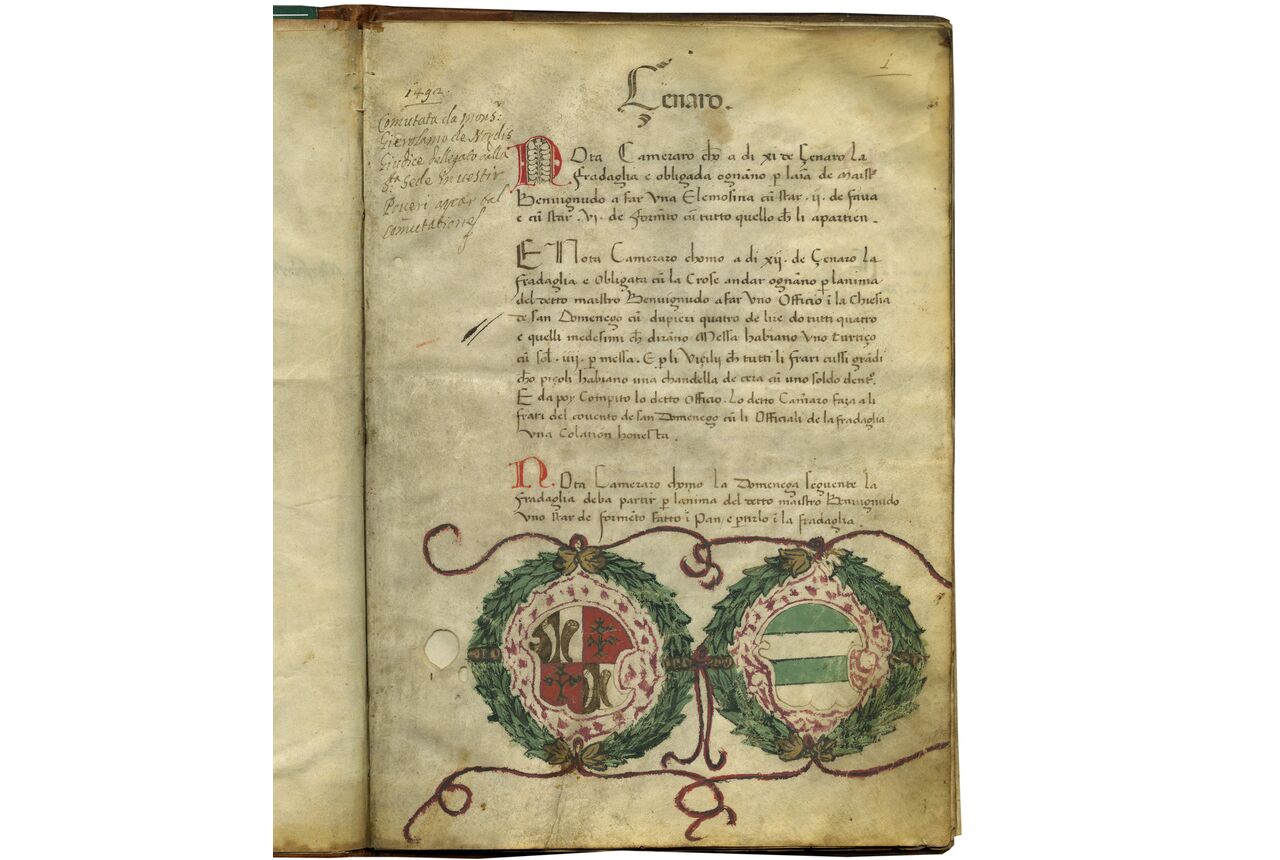 i
Çenaro.
1492.
Comutata da mons:
Gierolamo de Nordis
Giudice dellegato dalla
Sta Sede in uestir
Poueri apar dal
comutatione
NOta Cameraro cħo a di xi de Çenaro La
Fradaglia e obligada ognāno p laīa de maistº
Benuignudo a far vna Elemosina cū star . ii . de faua
e cū star . vi . de formēto cū tutto quello cħ li apartien .
E Nota Cameraro chomo a di xij . de Çenaro La
Fradaglia e Obligata cū la Crose andar ognāno p lanima
del detto maistro Benuignudo a far vno Officio ī la Chiesia
de san Domenego cū dupieri quatro de lire do tutti quatro
e quelli medesimi cħ dirāno Messa habiano vno turtiço
cū sol . iiij . p messa . E p li Viçilij cħ tutti li frari cussi grādi
cħo piçoli habiano una chandella de cera cū uno soldo dentº.
E da poy Compito lo detto officio . Lo detto Camraro faza a li
frari del couento de san Domenego cū li Officiali de la fradaglia
vna Colation honesta .
NOta Cameraro chomo la Domenega seguente La
Fradaglia deba partir p lanima del detto maistro Benuignudo
vno star de formēto fatto ī Pan, e ptirlo ī la fradaglia .